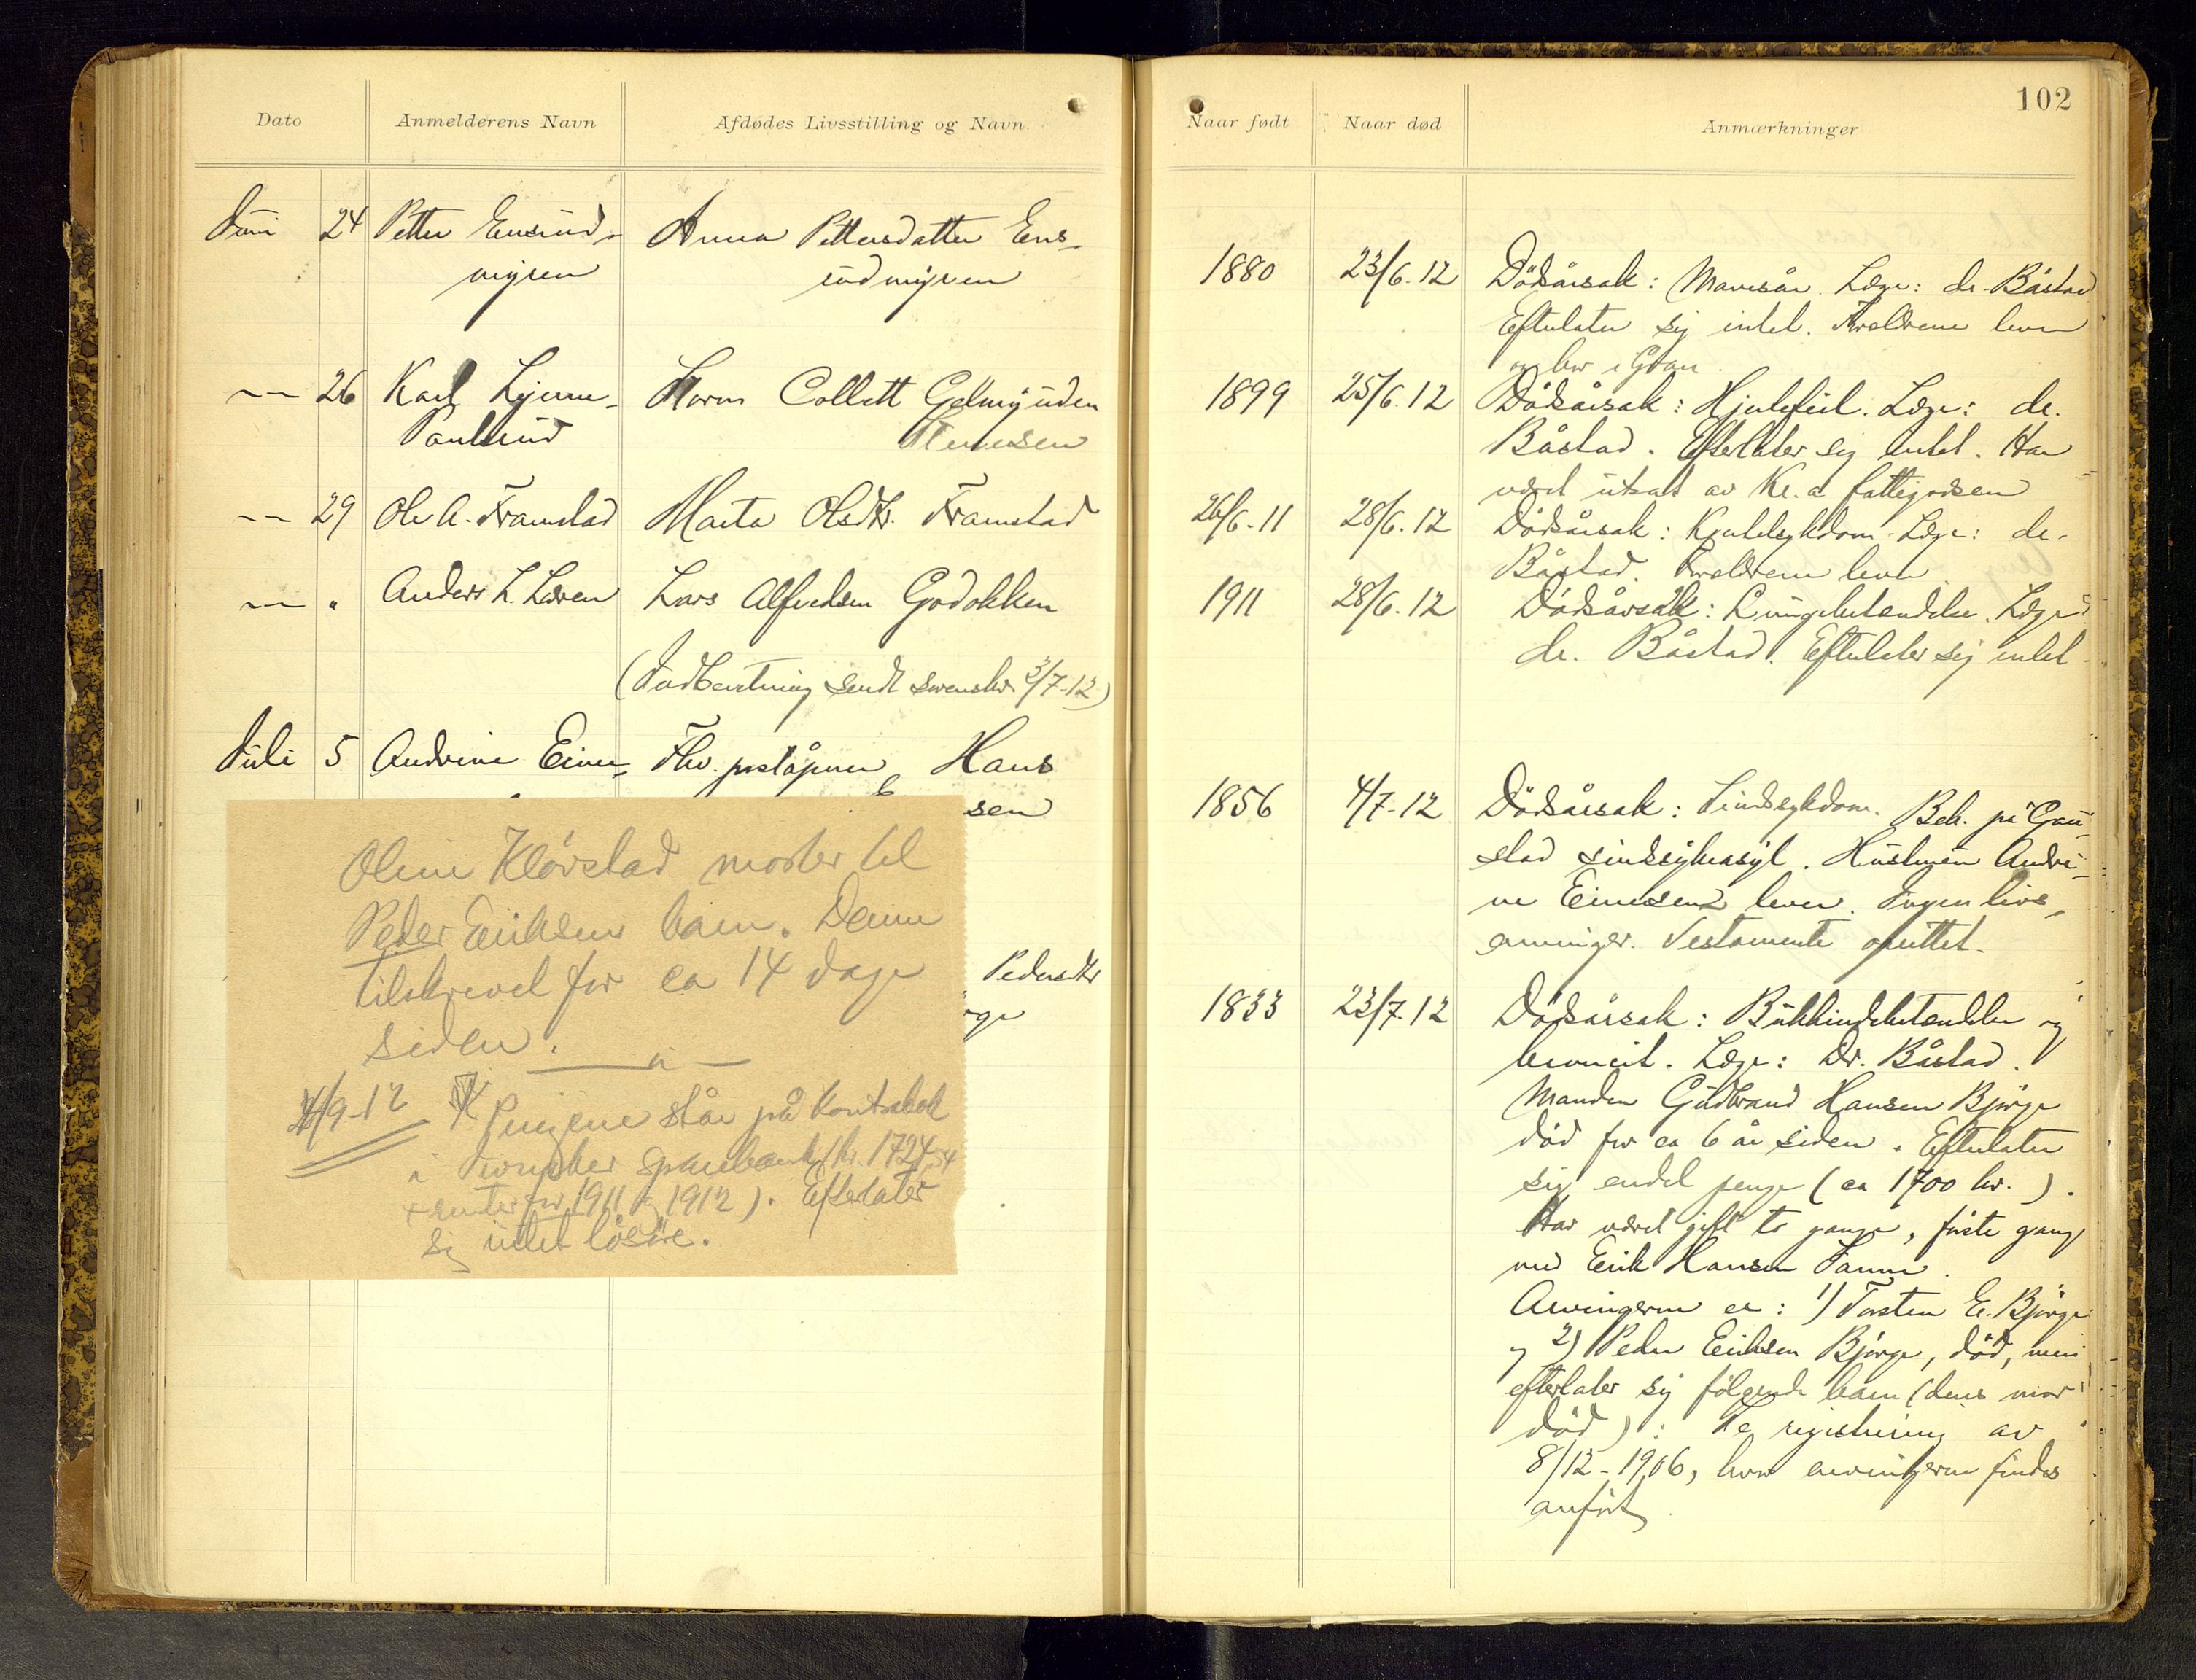 Dato
Anmelderens Navn
Afdødes Livsstilling og Navn
Juni 24 Petter Ensrud-
myren
Anna Pettersdatter Ens-
rudmyren
26 Karl
Paulsrud
Collett
29 Ole A. Framstad
Marta Olsdtr. Framstad
" Anders L. Løven
Lars Alfredsen Godokken
(Indberetning sendt 3/7-12)
Juli 5 Andrine Einer-
Fhv. poståpner Hans
sen
Pedersdtr
rge
Oline Kløvstad moster til
Peder Eriksens barn. Denne
tilskrevet for ca 14 dage
siden.
/9-12 Pengene står på kontrabok
i sparebank (kr. 1724,54
+ renter for 1911 og 1912). Efterlater
sig intet løsøre.
102
Naar født
Naar død
Anmærkninger
1880 23/6-12 Dödsårsak: Mavesår. Læge: dr. Båstad
Efterlater sig intet. Forældrene lever
og bor i Gran.
1899 25/6.12 Dödsårsak: Hjertefeil. Læge: dr.
Båstad. Efterlater sig intet. Har
været utsat av Kr.a fattigvæsen
26/6-11 28/6.12 Dödsårsak: Læge: dr.
Båstad. Forældrene lever
1911 28/6.12 Dödsårsak: Lungebetændelse. Læge:
dr. Båstad. Efterlater sig intet.
1856 4/7-12 Dödsårsak: Sindssykdom. Beh. på Gau-
stad sindssykeasyl. Hustruen Andri-
ne Einersen lever. Ingen livs-
arvinger. Testamente oprettet.
1833 23/7-12 Dödsårsak: Bukhindebetændelse og
Læge: Dr. Båstad.
Manden Gudbrand Hansen Bjørge
död for ca 6 år siden. Efterlater
sig endel penge (ca 1700 kr.).
Har været gift to gange, første gang
med Erik Hansen
Arvingerne er: 1) Torsten E. Bjørge
og 2) Peder Eriksen Bjørge, död, men
efterlater sig følgende barn (dens mor
död): Se registrering av
8/12-1906, hvor arvingerne findes
anført.